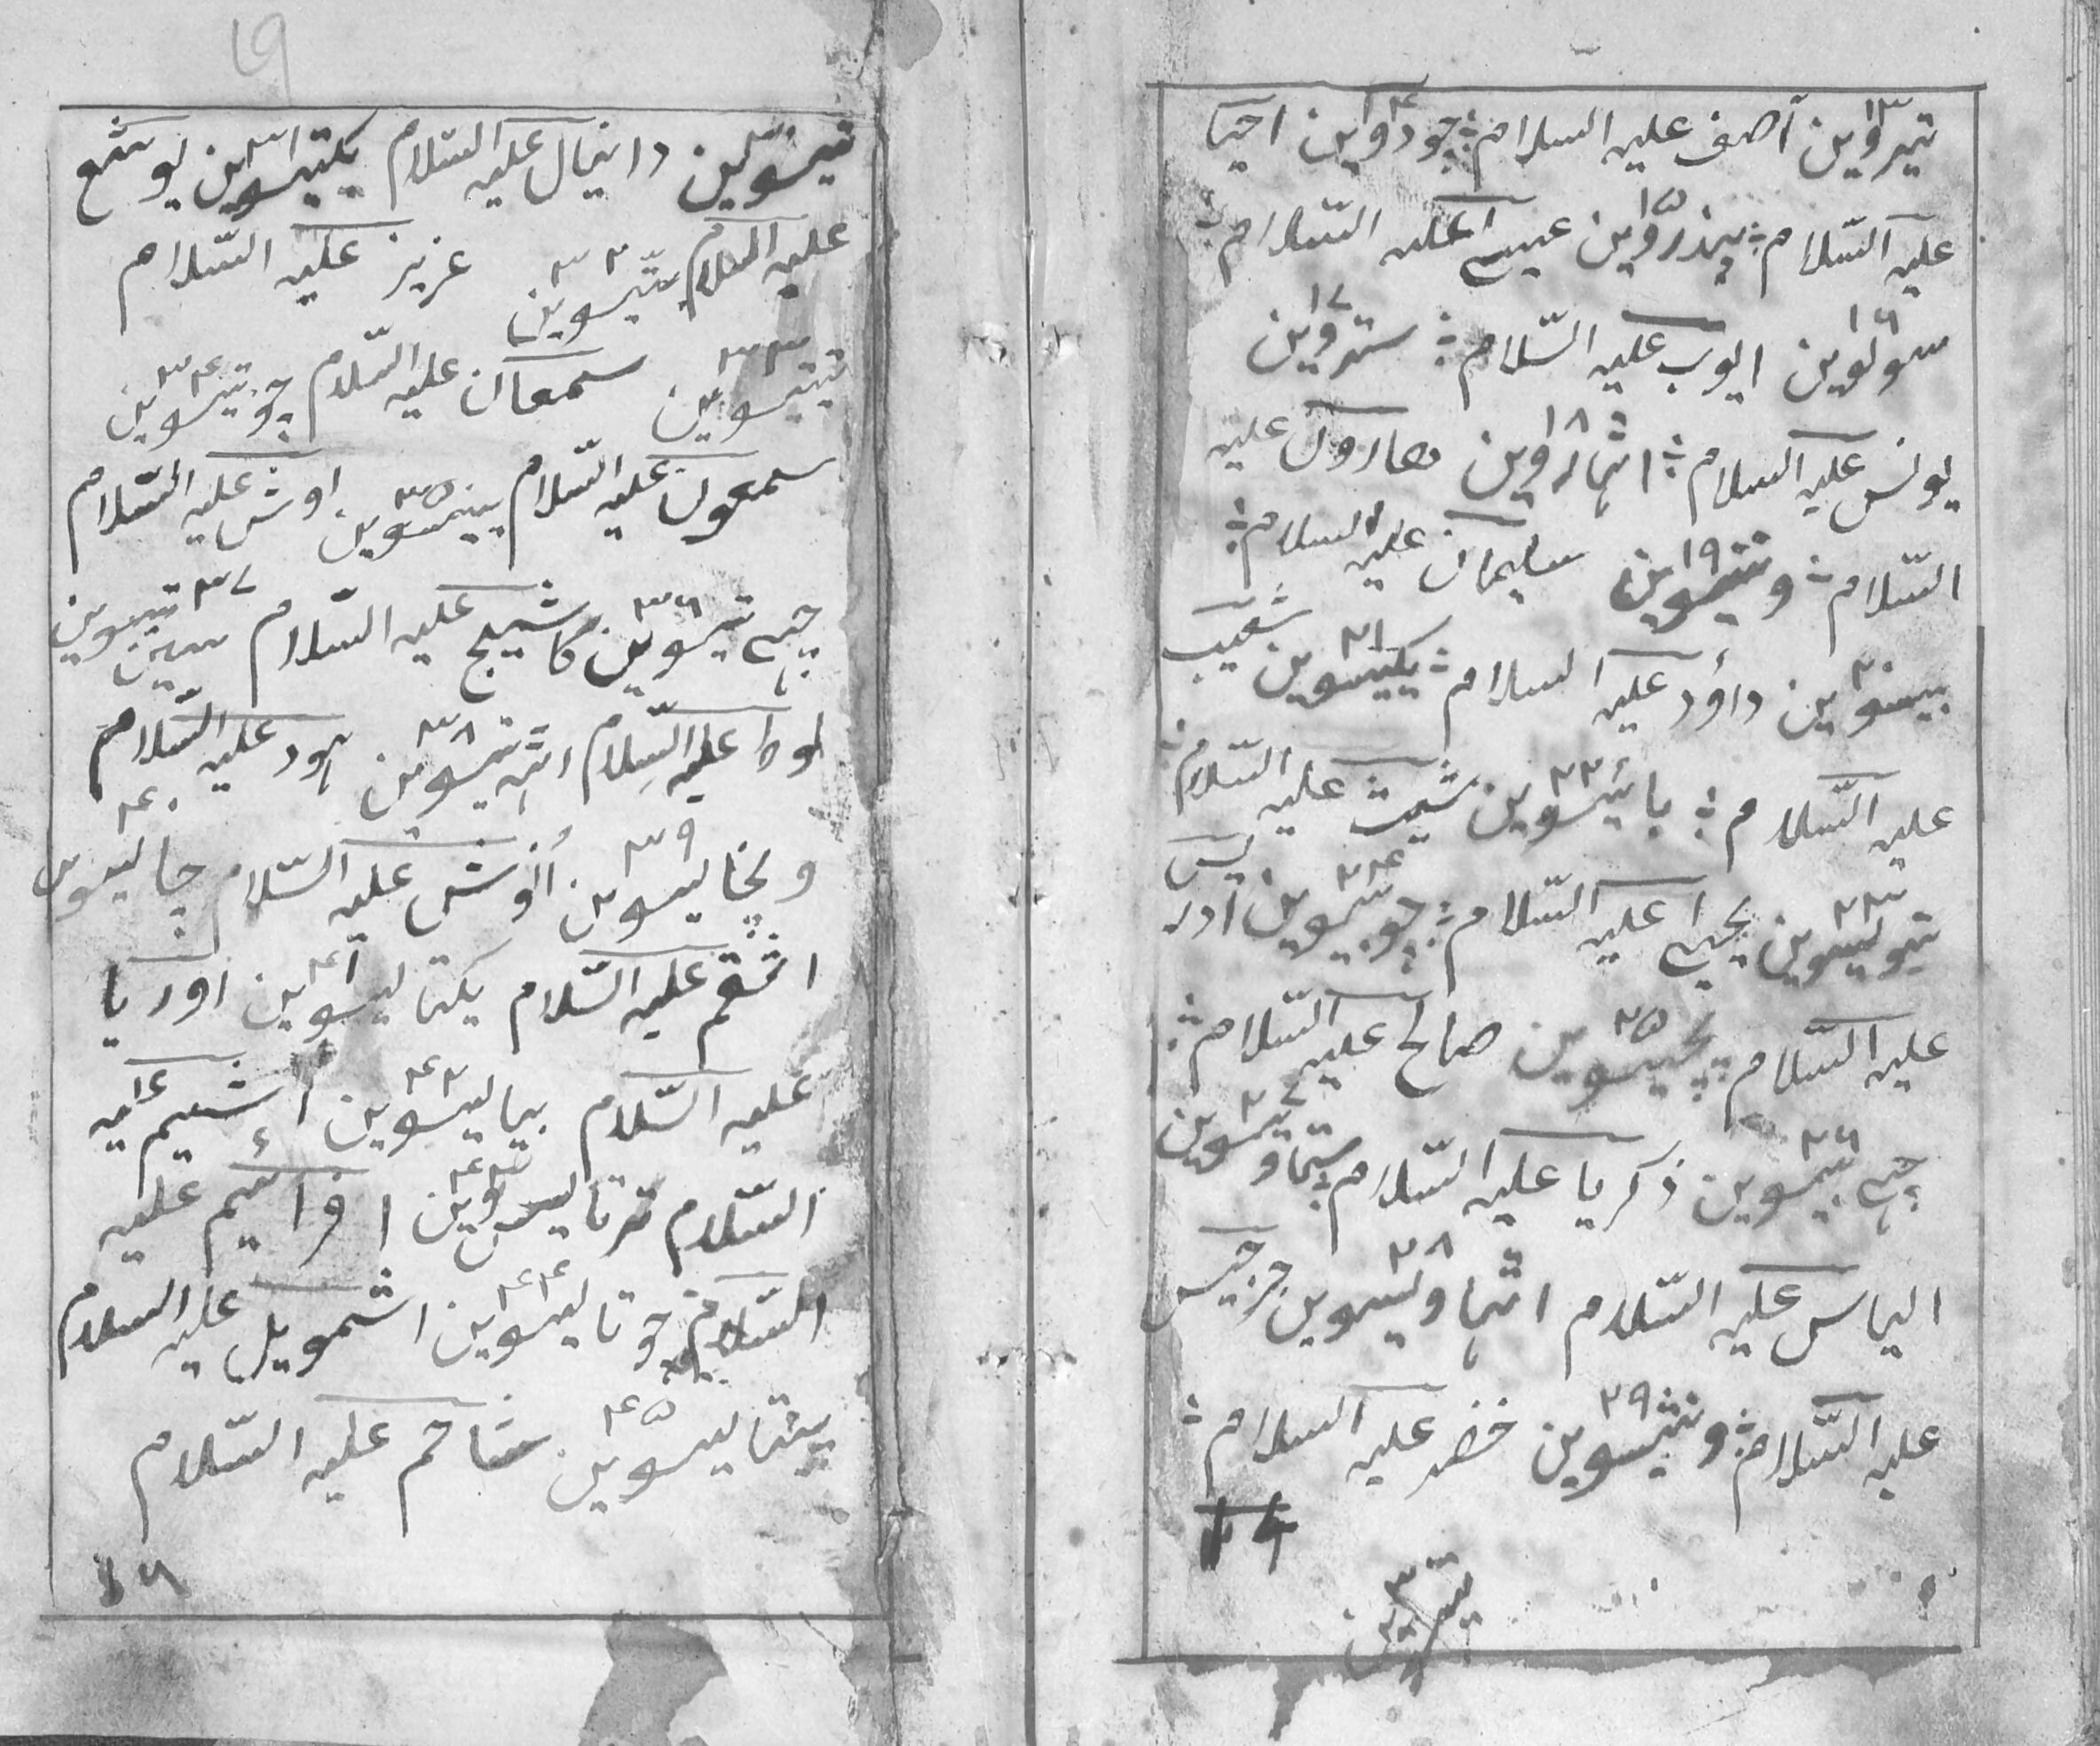 تیر۱۳وین آصف علیہ السلام ؛ چود۱۴واین احیا
علیہ السّلام ؛ پندر۱۵واین عیسیٰ علیہ السّلام ؛
سو۱۶لوین ایوب علیہ السّلام ؛ ستر۱۷وین
یونس علیہ السلام ؛ اٹہار۱۸وین ہارون علیہ
السّلام ؛ ونی۱۹سوین سلیمان علیہ السلام ؛
بیس۲۰وین داؤد علیہ السلام ؛ یکی۲۱سوین شعیب
علیہ السّلام ؛ بائی۲۲سوین شیث علیہ السّلام ؛
تیو۲۳یسوین یحیی علیہ السّلام ؛ چوبی۲۴سوین ادریس
علیہ السّلام پچی۲۵سوین صالح علیہ السّلام ؛
چہے بی۲۶سوین ذکریا علیہ السّلام ستاو۲۷یسوین
الیاس علیہ السّلام اٹہاو۲۸یسوین جرجیس
علیہ السّلام ؛ ونتی۲۹سوین خضر علیہ السلام ؛
۱۶
تیس۳۰وین
19
تیس۳۰وین دانیال علیہ السّلام یکتی۳۱سوین یوشع
علیہ السلام بتی۳۲سوین عزیز علیہ السّلام
تیتی۳۳سوین سمعان علیہ السّلام چوتی۳۴سوین
سمعون علیہ السّلام پیتی۳۵سوین اوش علیہ السّلام
چہے تی۳۶سوین کاشیج علیہ السّلام سین تی۳۷سوین
لوط علیہ السّلام اٹہ تی۳۸سوین ہود علیہ السّلام
ونچا۳۹لیسوین اُنوش علیہ السّلام چالی۴۰سوین
اثقم علیہ السّلام یکتا۴۱لیسوین اوریا
علیہ السّلام بیا۴۲لیسوین اشیم علیہ
السّلام ترتا۴۳لیسوین افرائیم علیہ
السّلام چوتا۴۴لیسوین اشمویل علیہ السلام
پیتا۴۵لیسوین شاحم علیہ السّلام